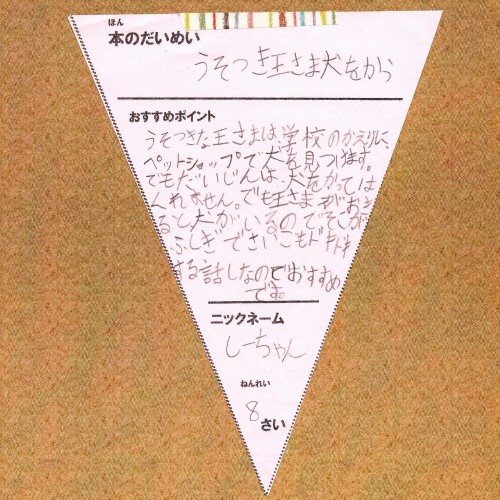 ほん
本のだいめい
うそつき王さま犬をかう
おすすめポイント
うそつきな王さまは学校のかえりに、
ペットショップで犬を見つけます。
でもだいじんは、犬をかっては
くれません。でも王さまがおき
ると犬がいるのでそこが
ふしぎでさいごもドキドキ
する話しなのでおすすめ
です。
ニックネーム
しーちゃん
ねんれい
8さい